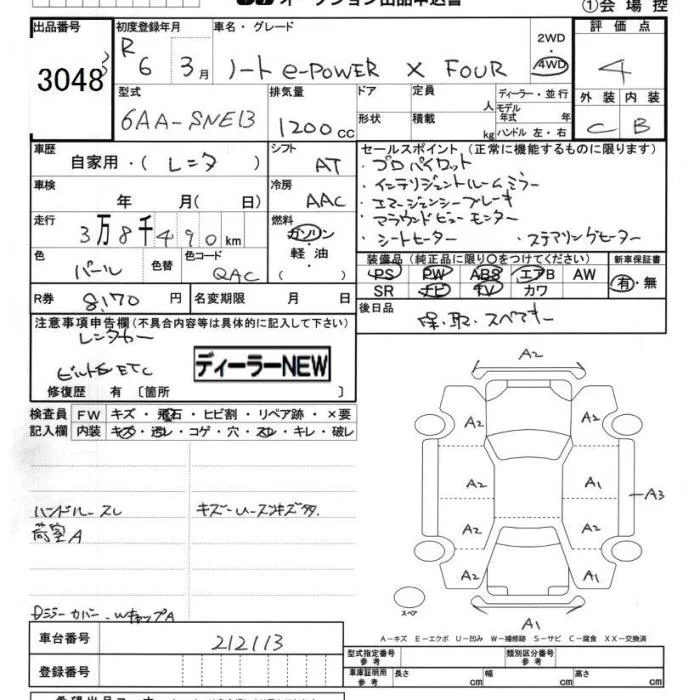 オークション出品申込書
①会場控
出品番号 3048
初度登録年月 R 6 3月
車名・グレード ノート e-POWER X FOUR
2WD 4WD
評価点 4
外装 C 内装 B
型式 6AA-SNE13
排気量 1200cc
ドア 形状
定員 人
積載 kg
ディーラー・並行
モデル年式 年
ハンドル 左・右
車歴 自家用・(レンタ)
シフト AT
セールスポイント (正常に機能するものに限ります)
・プロパイロット
・インテリジェントルームミラー
・エマージェンシーブレーキ
・アラウンドビューモニター
・シートヒーター ・ステアリングヒーター
車検 年 月(日)
冷房 AAC
走行 3万8千490km
燃料 ガソリン・軽油・( )
色 パール
色替
色コード QAC
装備品 (純正品に限り○をつけてください)
PS PW ABS エアB AW
SR ナビ TV カワ
新車保証書 有・無
R券 8,170円
名変期限 月 日
後日品 保・取・スペアキー
注意事項申告欄(不具合内容等は具体的に記入して下さい)
レンタカー
ビルトインETC
ディーラーNEW
修復歴 有 〔箇所 〕
検査員記入欄
FW キズ・飛石・ヒビ割・リペア跡・×要
内装 キズ・汚レ・コゲ・穴・スレ・キレ・破レ
ハンドルースレ
荷室A
キズーUーズツキズ多
ロジコーカバー、WキャップA
A2
A2 A2
A2 A1
A3
A2 A2
A2 A1
スペア
A1
A-キズ E-エクボ U-凹み W-補修跡 S-サビ C-腐食 XX-交換済
車台番号 212113
登録番号
型式指定番号 参考
類別区分番号 参考
車庫証明用 参考 長さ cm 幅 cm 高さ cm
希望出品コーナー